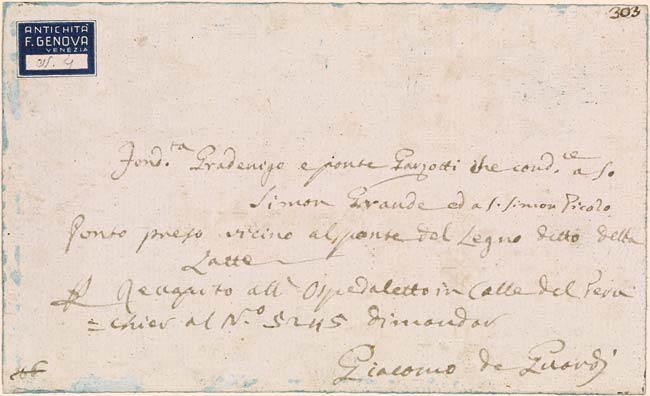 ANTICHITÀ
F. GENOVA
VENEZIA
N. 4
303
Fond.ta Gradenigo e ponte Garzotti che cond.ce a S.
Simon Grande ed a S. Simon Picolo
Ponto preso vicino al ponte del Legno ditto della
Latte
Recapito all' Ospedaletto in Calle del Peru
=chier al N.o 5245 dimandar
Giacomo de Guardi